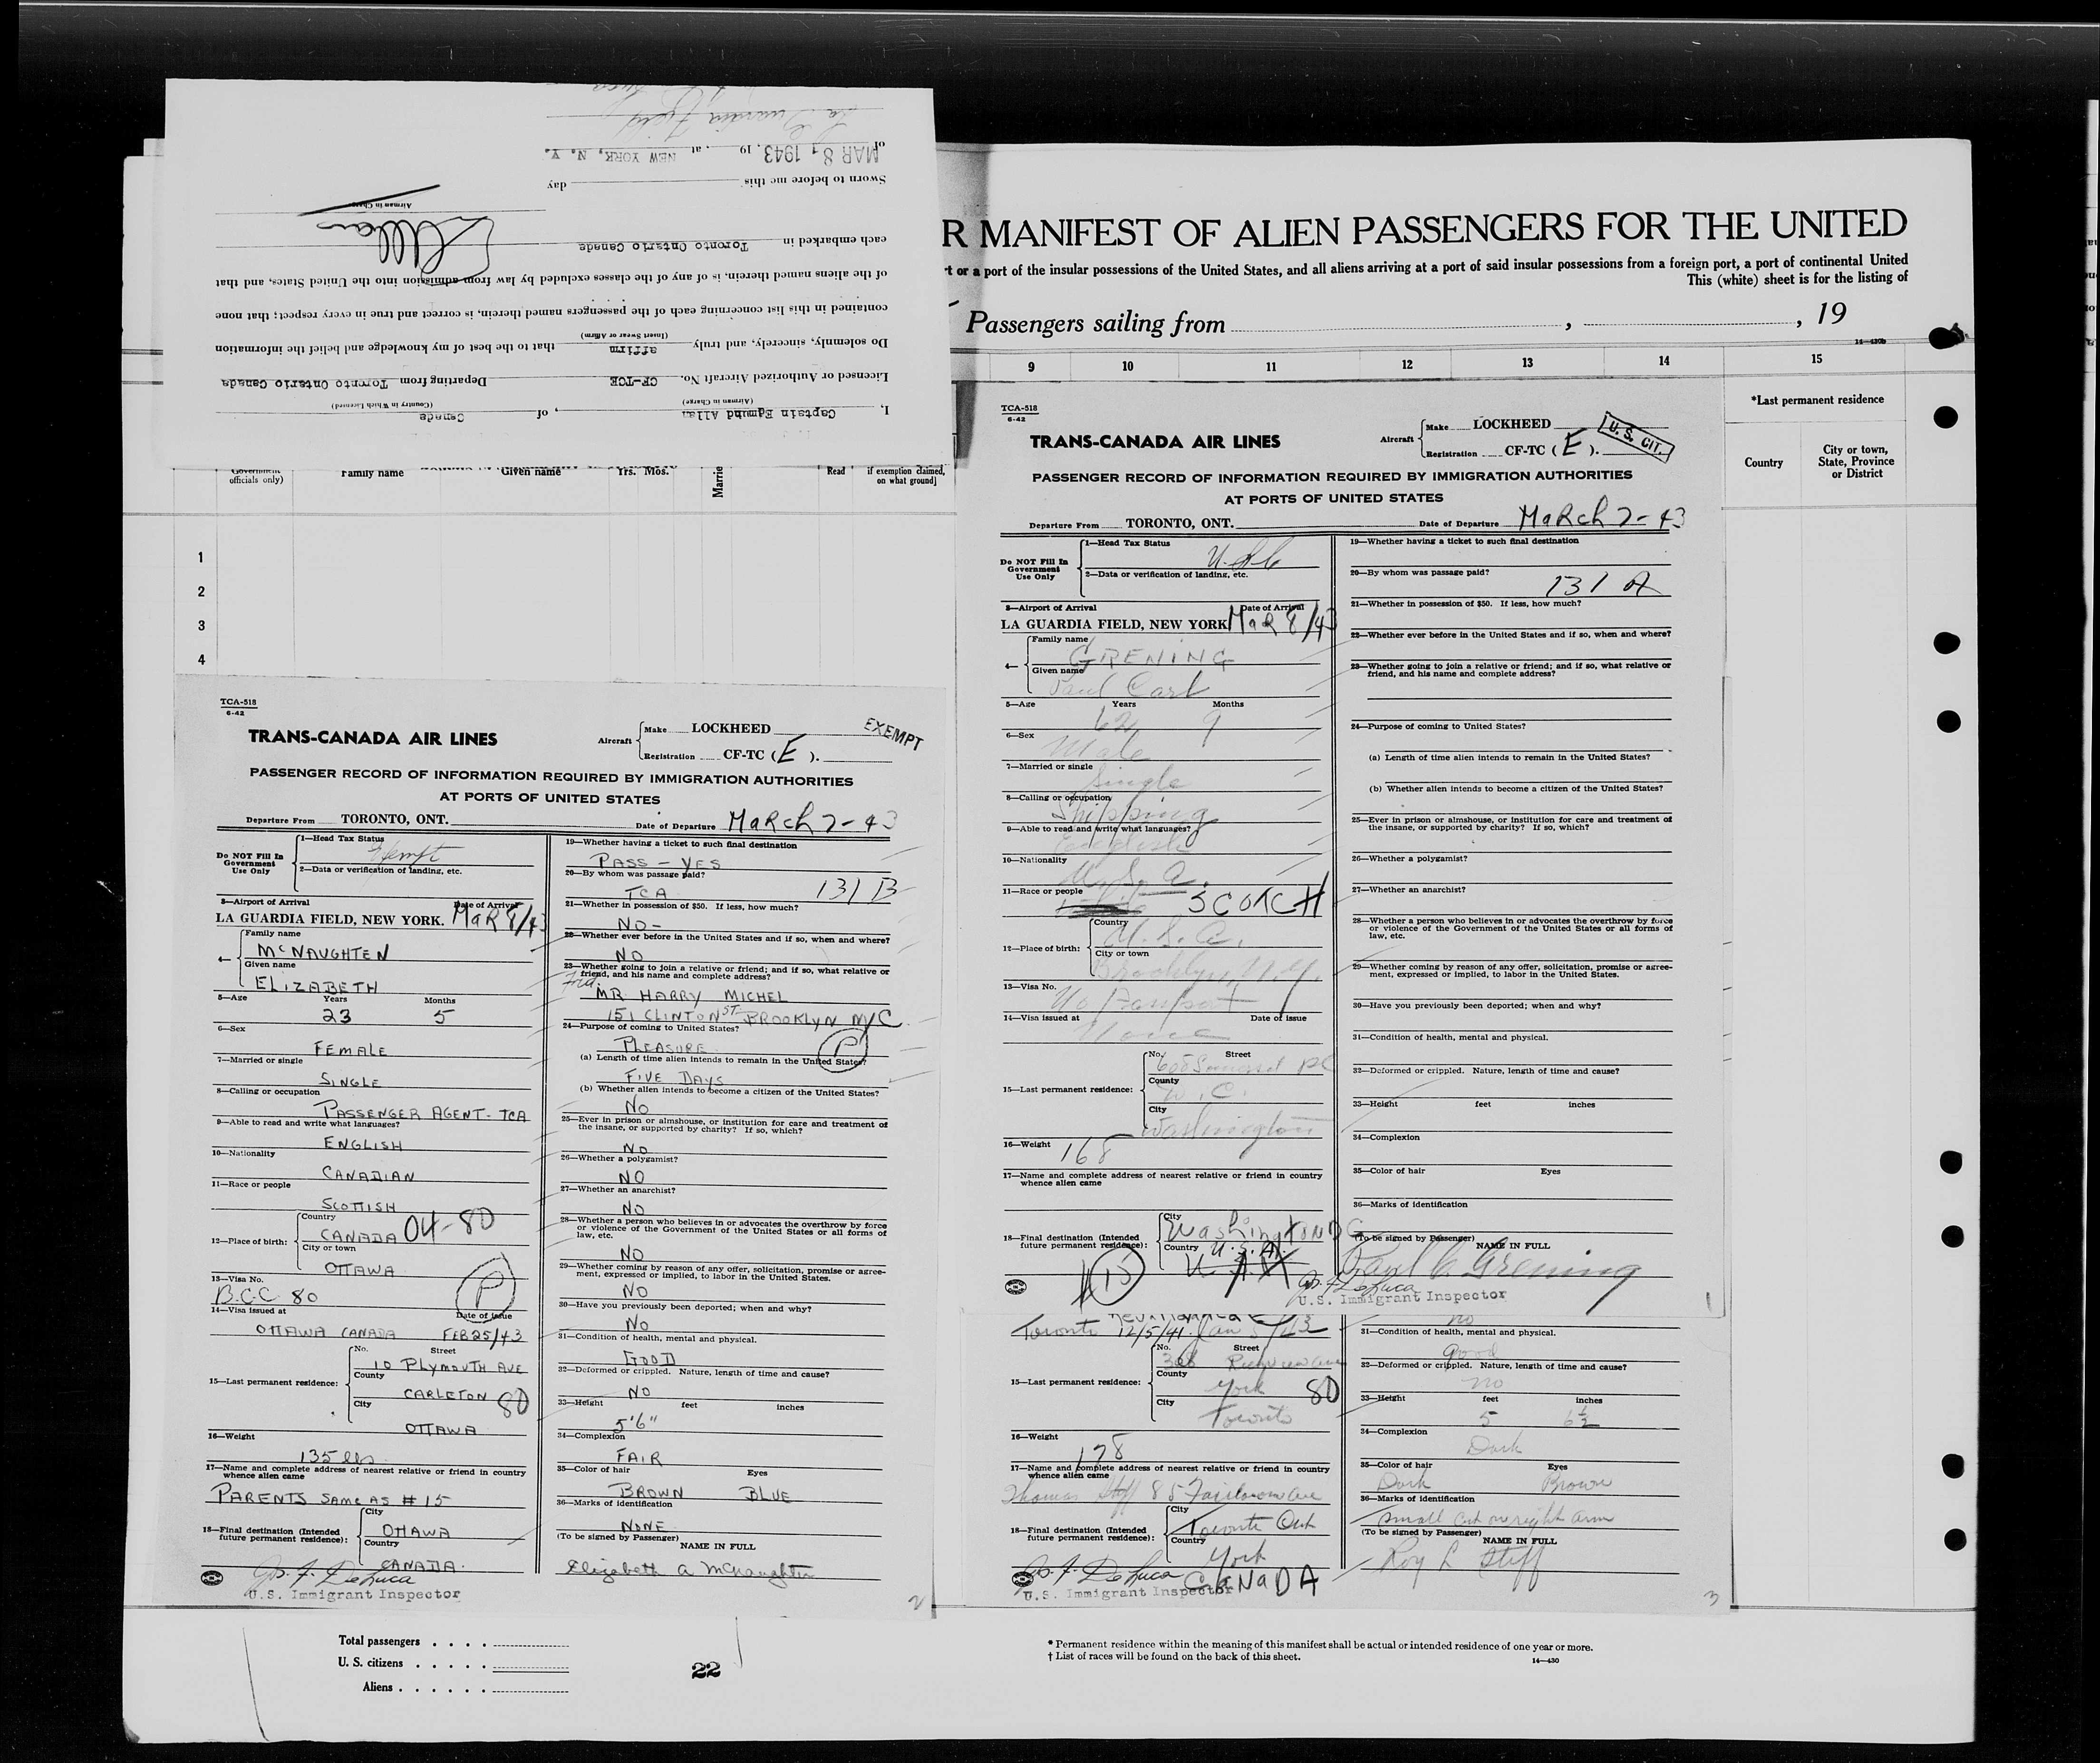 I, Captain Edmund Allan, of Canada
(Airman in Charge) (Country in Which Licensed)
Licensed or Authorized Aircraft No. CF-TCE Departing from Toronto Ontario Canada
Do solemnly, sincerely, and truly affirm that to the best of my knowledge and belief the information
(Insert Swear or Affirm)
contained in this list concerning each of the passengers named therein, is correct and true in every respect; that none
of the aliens named therein, is of any of the classes excluded by law from admission into the United States, and that
each embarked in Toronto Ontario Canada
Airman in Charge
Sworn to before me this day
of MAR 8, 1943, 19 , at NEW YORK, N. Y.
La Guardia Field
R MANIFEST OF ALIEN PASSENGERS FOR THE UNITED
t or a port of the insular possessions of the United States, and all aliens arriving at a port of said insular possessions from a foreign port, a port of continental United
This (white) sheet is for the listing of
Passengers sailing from , , 19
14—430b
9 10 11 12 13 14 15
*Last permanent residence
Country
City or town, State, Province or District
Government officials only)
Family name Given name Yrs. Mos. Marrie Read if exemption claimed, on what ground]
1
2
3
4
TCA-518
6-42
TRANS-CANADA AIR LINES
Aircraft Make LOCKHEED
Registration CF-TC (E).
EXEMPT
PASSENGER RECORD OF INFORMATION REQUIRED BY IMMIGRATION AUTHORITIES
AT PORTS OF UNITED STATES
Departure From TORONTO, ONT. Date of Departure MARCH 7-43
Do NOT Fill In Government Use Only
1—Head Tax Status Exempt
2—Data or verification of landing, etc.
3—Airport of Arrival Date of Arrival
LA GUARDIA FIELD, NEW YORK. MAR 8/43
4— Family name
McNAUGHTEN
Given name
ELIZABETH
5—Age Years Months
23 5
6—Sex
FEMALE
7—Married or single
SINGLE
8—Calling or occupation
PASSENGER AGENT - TCA
9—Able to read and write what languages?
ENGLISH
10—Nationality
CANADIAN
11—Race or people
SCOTTISH
12—Place of birth: Country
CANADA 04-80
City or town
OTTAWA
13—Visa No.
B.C.C 80 P
14—Visa issued at Date of issue
OTTAWA CANADA FEB 25/43
15—Last permanent residence: No. Street
10 PLYMOUTH AVE
County
CARLETON 80
City
OTTAWA
16—Weight
135 lbs
17—Name and complete address of nearest relative or friend in country whence alien came
PARENTS SAME AS # 15
18—Final destination (Intended future permanent residence): City
OTTAWA
Country
CANADA.
Jos. F. DeLuca
U.S. Immigrant Inspector
19—Whether having a ticket to such final destination
PASS - YES
20—By whom was passage paid?
TCA 131 B
21—Whether in possession of $50. If less, how much?
NO -
22—Whether ever before in the United States and if so, when and where?
NO
23—Whether going to join a relative or friend; and if so, what relative or friend, and his name and complete address?
Frd.
MR HARRY MICHEL
151 CLINTON ST BROOKLYN NYC
24—Purpose of coming to United States?
PLEASURE P
(a) Length of time alien intends to remain in the United States?
FIVE DAYS
(b) Whether alien intends to become a citizen of the United States?
NO
25—Ever in prison or almshouse, or institution for care and treatment of the insane, or supported by charity? If so, which?
NO
26—Whether a polygamist?
NO
27—Whether an anarchist?
NO
28—Whether a person who believes in or advocates the overthrow by force or violence of the Government of the United States or all forms of law, etc.
NO
29—Whether coming by reason of any offer, solicitation, promise or agreement, expressed or implied, to labor in the United States.
NO
30—Have you previously been deported; when and why?
NO
31—Condition of health, mental and physical.
GOOD
32—Deformed or crippled. Nature, length of time and cause?
NO
33—Height feet inches
5'6"
34—Complexion
FAIR
35—Color of hair Eyes
BROWN BLUE
36—Marks of identification
NONE
(To be signed by Passenger) NAME IN FULL
Elizabeth A McNaughten
2
TCA-518
6-42
TRANS-CANADA AIR LINES
Aircraft Make LOCKHEED
Registration CF-TC (E).
U. S. CIT.
PASSENGER RECORD OF INFORMATION REQUIRED BY IMMIGRATION AUTHORITIES
AT PORTS OF UNITED STATES
Departure From TORONTO, ONT. Date of Departure MARCH 7-43
Do NOT Fill In Government Use Only
1—Head Tax Status
2—Data or verification of landing, etc.
3—Airport of Arrival Date of Arrival
LA GUARDIA FIELD, NEW YORK MAR 8/43
4— Family name
GRENING
Given name
Paul Carl
5—Age Years Months
62 9
6—Sex
Male
7—Married or single
Single
8—Calling or occupation
Shipping
9—Able to read and write what languages?
English
10—Nationality
U. S. A.
11—Race or people
SCOTCH
12—Place of birth: Country
U. S. A.
City or town
Brooklyn, N.Y.
13—Visa No.
No Passport
14—Visa issued at Date of issue
None
15—Last permanent residence: No. Street
County
D. C.
City
Washington
16—Weight
168
17—Name and complete address of nearest relative or friend in country whence alien came
18—Final destination (Intended future permanent residence): City
Washington DC
Country
U. S. A.
15
19—Whether having a ticket to such final destination
20—By whom was passage paid?
131 A
21—Whether in possession of $50. If less, how much?
22—Whether ever before in the United States and if so, when and where?
23—Whether going to join a relative or friend; and if so, what relative or friend, and his name and complete address?
24—Purpose of coming to United States?
(a) Length of time alien intends to remain in the United States?
(b) Whether alien intends to become a citizen of the United States?
25—Ever in prison or almshouse, or institution for care and treatment of the insane, or supported by charity? If so, which?
26—Whether a polygamist?
27—Whether an anarchist?
28—Whether a person who believes in or advocates the overthrow by force or violence of the Government of the United States or all forms of law, etc.
29—Whether coming by reason of any offer, solicitation, promise or agreement, expressed or implied, to labor in the United States.
30—Have you previously been deported; when and why?
31—Condition of health, mental and physical.
32—Deformed or crippled. Nature, length of time and cause?
33—Height feet inches
34—Complexion
35—Color of hair Eyes
36—Marks of identification
(To be signed by Passenger) NAME IN FULL
Paul C. Grening
Jos. F. DeLuca
U.S. Immigrant Inspector
1
Toronto 12/5/41 Jan 5/43
15—Last permanent residence: No. Street
308 Riverview Ave
County
York 80
City
Toronto
16—Weight
178
17—Name and complete address of nearest relative or friend in country whence alien came
Thomas Stiff 85 Fairlawn Ave
18—Final destination (Intended future permanent residence): City
Toronto Ont
Country
York
CANADA
Jos. F. DeLuca
U.S. Immigrant Inspector
no
31—Condition of health, mental and physical.
good
32—Deformed or crippled. Nature, length of time and cause?
no
33—Height feet inches
5 6½
34—Complexion
Dark
35—Color of hair Eyes
Dark Brown
36—Marks of identification
small cut on right arm
(To be signed by Passenger) NAME IN FULL
Roy L Stiff
3
Total passengers . . . .
U. S. citizens . . . . .
Aliens . . . . . .
22
* Permanent residence within the meaning of this manifest shall be actual or intended residence of one year or more.
† List of races will be found on the back of this sheet.
14—430